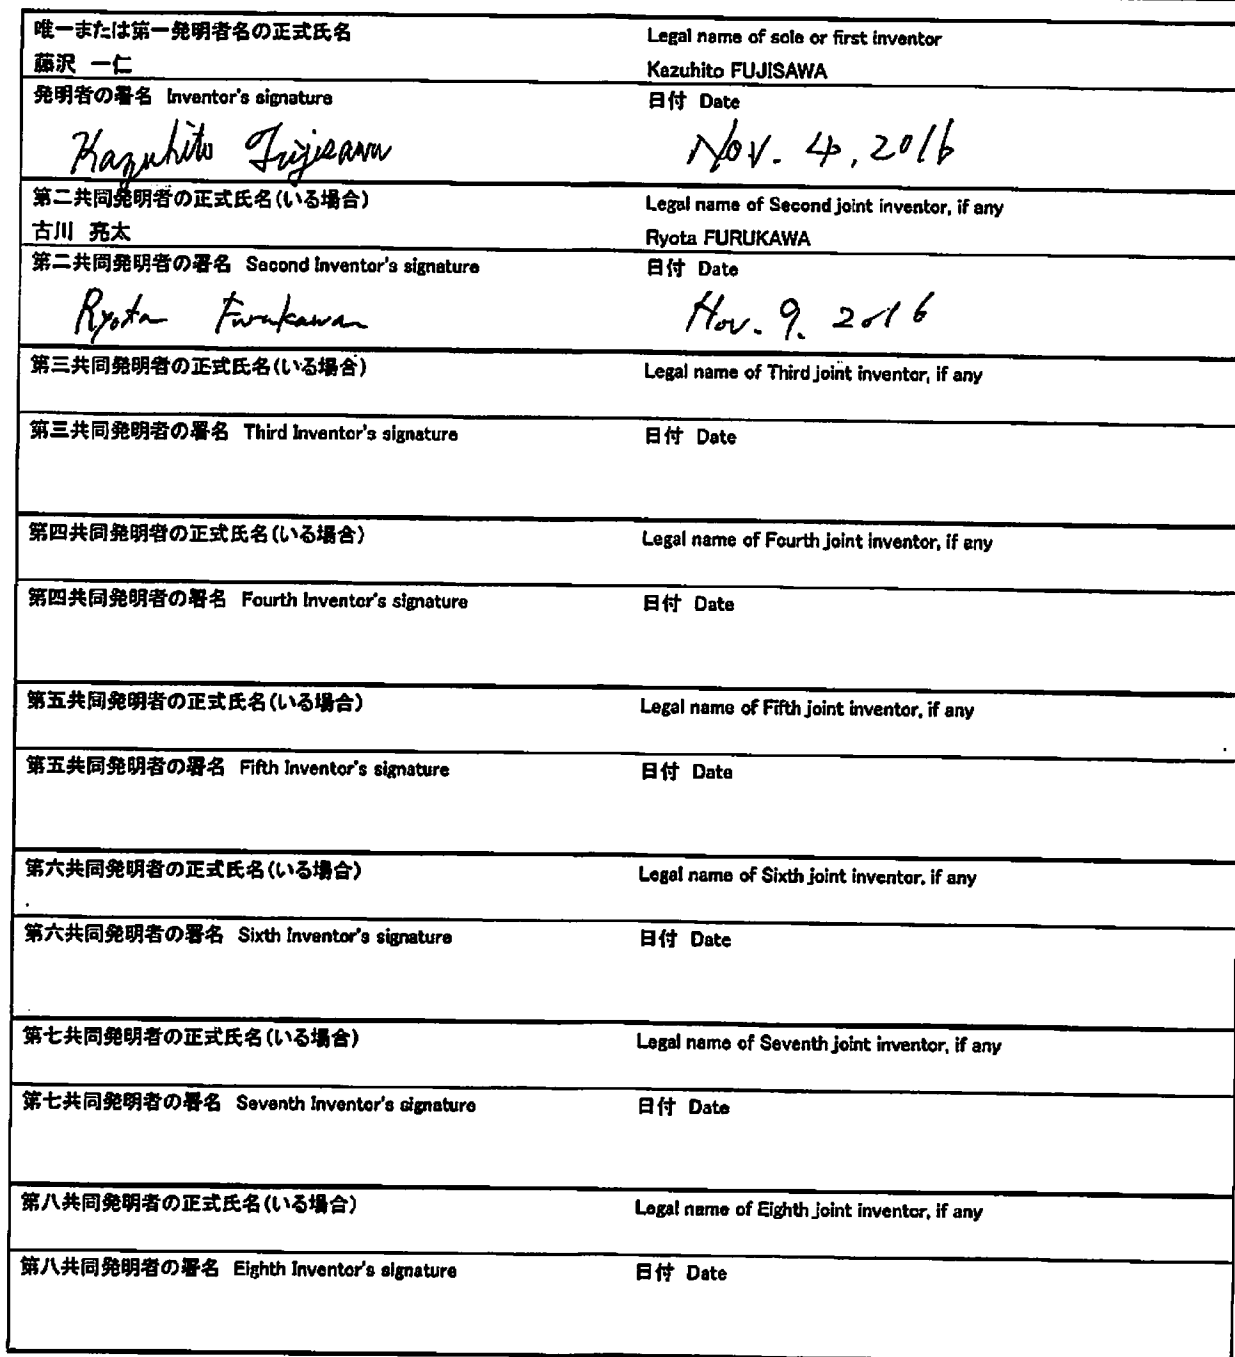 唯一または第一発明者名の正式氏名 Legal name of sole or first inventor
藤沢 一仁 Kazuhito FUJISAWA
発明者の署名 Inventor's signature 日付 Date
Kazuhito Fujisawa Nov. 4, 2016
第二共同発明者の正式氏名(いる場合) Legal name of Second joint inventor, if any
古川 亮太 Ryota FURUKAWA
第二共同発明者の署名 Second Inventor's signature 日付 Date
Ryota Furukawa Nov. 9. 2016
第三共同発明者の正式氏名(いる場合) Legal name of Third joint inventor, if any
第三共同発明者の署名 Third Inventor's signature 日付 Date
第四共同発明者の正式氏名(いる場合) Legal name of Fourth joint inventor, if any
第四共同発明者の署名 Fourth Inventor's signature 日付 Date
第五共同発明者の正式氏名(いる場合) Legal name of Fifth joint inventor, if any
第五共同発明者の署名 Fifth Inventor's signature 日付 Date
第六共同発明者の正式氏名(いる場合) Legal name of Sixth joint inventor, if any
第六共同発明者の署名 Sixth Inventor's signature 日付 Date
第七共同発明者の正式氏名(いる場合) Legal name of Seventh joint inventor, if any
第七共同発明者の署名 Seventh Inventor's signature 日付 Date
第八共同発明者の正式氏名(いる場合) Legal name of Eighth joint inventor, if any
第八共同発明者の署名 Eighth Inventor's signature 日付 Date